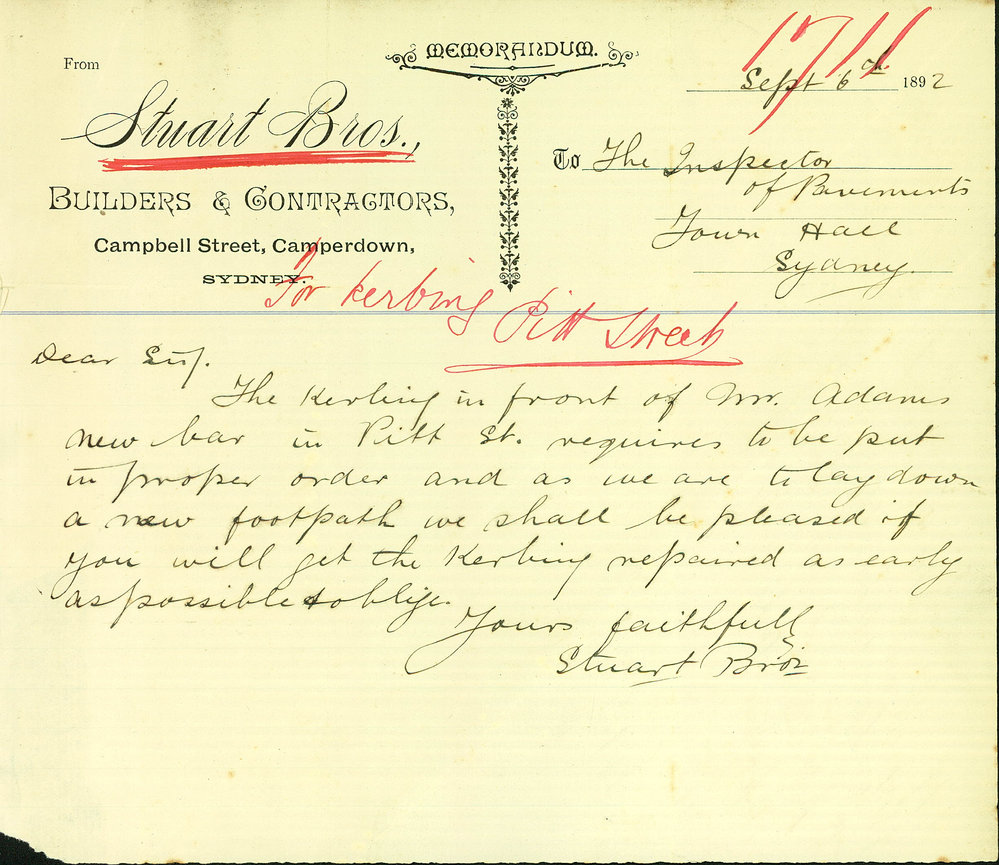 MEMORANDUM.
1711
From
Sept 6th 1892
Stuart Bros.,
To The Inspector
of Pavements
BUILDERS & CONTRACTORS,
Town Hall
Campbell Street, Camperdown,
Sydney.
SYDNEY.
For kerbing Pitt Street
Dear Sir/.
The Kerbing in front of Mr. Adams
new bar in Pitt St. requires to be put
in proper order and as we are to lay down
a new footpath we shall be pleased if
you will get the Kerbing repaired as early
as possible & oblige.
Yours faithfully
Stuart Bros